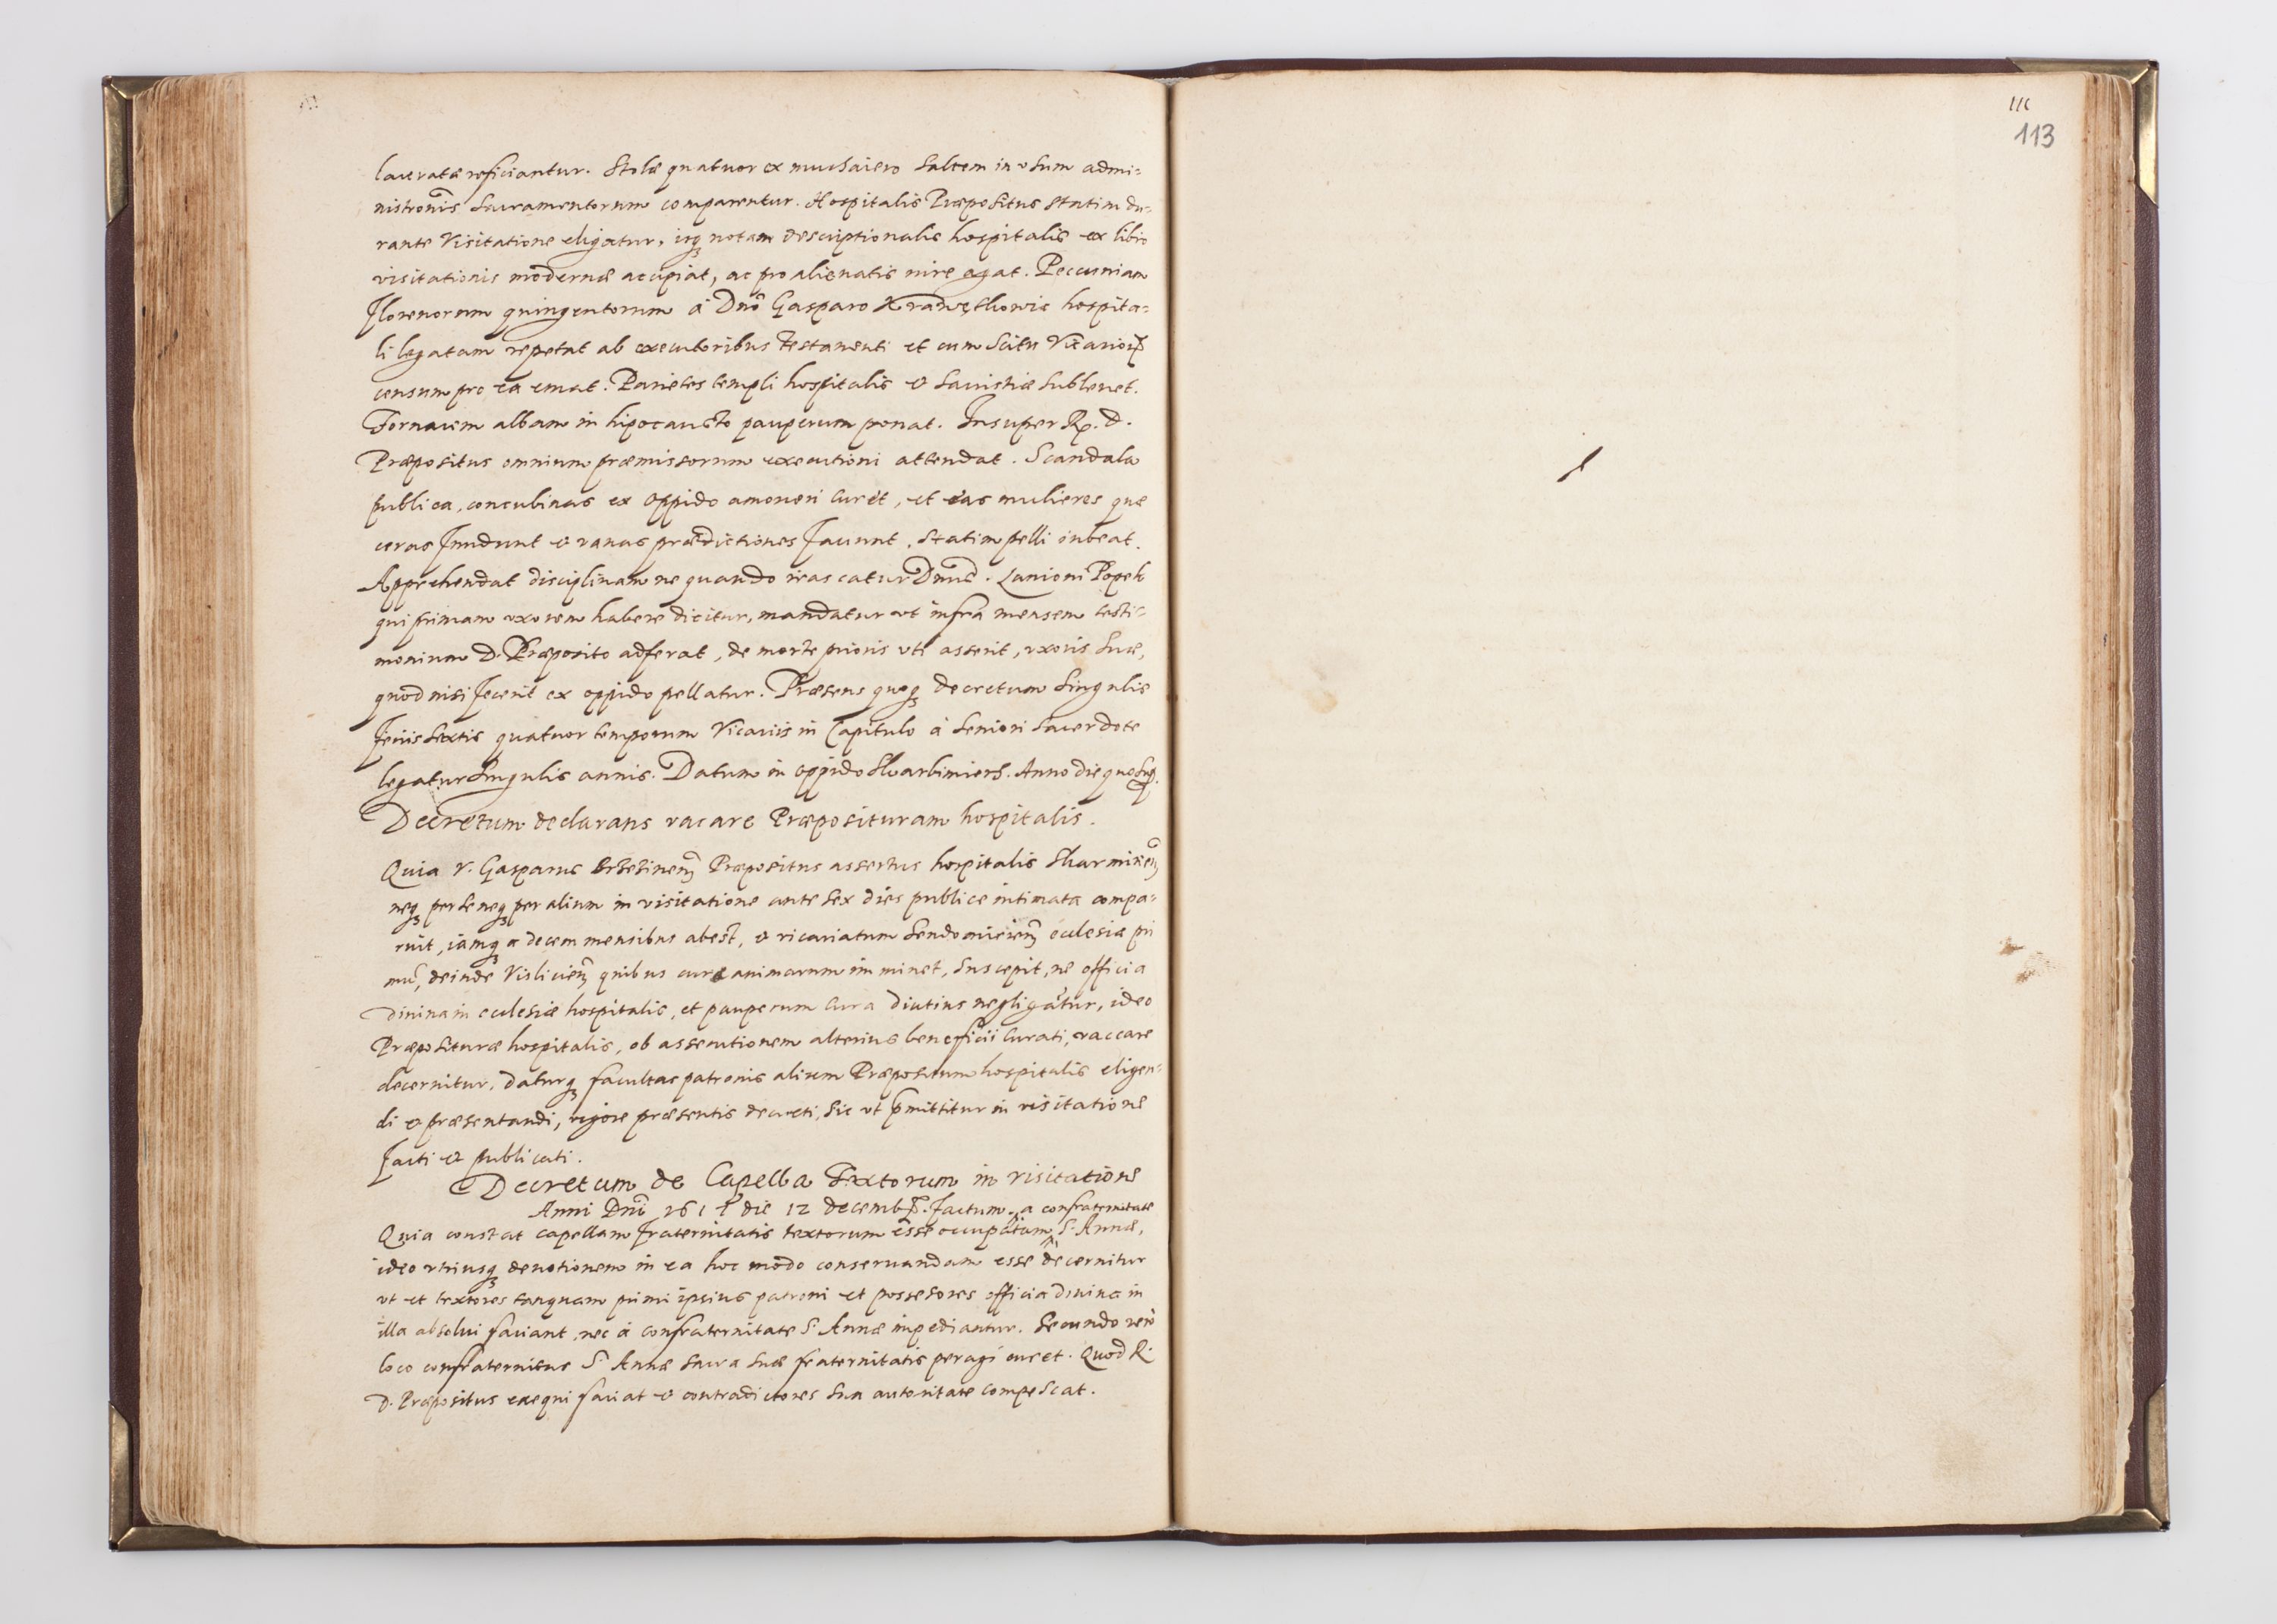 111
113
laceratæ reficiantur. Stolæ quatuor ex muchaiero saltem in vsum admi=
nistrōnis Sacramentorum comparentur. Hospitalis Præpositus statim du=
rante Visitatione eligatur, isq3 notam descriptionalis hospitalis ex libro
visitationis modernæ accipiat, ac pro alienatis iure agat. Peccuniam
florenorum quingentorum à Dnō Gasparo hospita=
li legatam repetat ab executoribus testamenti et cum scitu
censum pro ea emat. Parietes templi hospitalis & sacristiæ sublevet.
Fornacem albam in hipocausto pauperum ponat. Insuper R. D.
Præpositus omnium præmissorum executioni attendat. Scandala
publica, concubinas ex oppido amoveri curet, et eas mulieres quæ
ceras fundunt & vanas prædictiones faciunt, statim pelli iubeat.
Apprehendat disciplinam ne quando irascatur Dnūs. Lanioni Popek
qui primam vxorem habere dicitur, mandatur vt infra mensem testi=
monium D. Præposito adferat, de morte prioris vti asserit, vxoris suæ,
quod nisi fecerit ex oppido pellatur. Præsens quoq3 decretum singulis
ferijs sextis quatuor temporum Vicarijs in Capitulo à seniori sacerdote
legatur singulis annis. Datum in oppido Skarbimiers. Anno die quo sup.
Decretum declarans vacare Præposituram hospitalis.
Quia V. Gasparus Præpositus assertus hospitalis
neq3 per se neq3 per alium in visitatione ante sex dies publice intimata compa=
ruit, iamq3 a decem mensibus abest, & vicariatum ecclesiæ pri
mū, deinde quibus cura animarum imminet, suscepit, ne officia
divina in ecclesiæ hospitalis, et pauperum cura diutius negligātur, ideo
Præposituræ hospitalis, ob assecutionem alterius beneficii curati, vaccare
decernitur, daturq3 facultas patronis alium Præpositum hospitalis eligen=
di & præsentandi, vigore præsentis decreti, sic vt p̄mittitur in visitatione
facti & publicati.
Decretum de Capella Textorum in visitatione
Anni Dnī die 12 decemb. factum.
a confraternitate
Quia constat capellam fraternitatis textorum esse occupatam S. Annæ,
ideo vtriusq3 devotionem in ea hoc modo conservandam esse decernitur
vt et textores tanquam primi ipsius patroni et possesores officia divina in
illa absolvi faciant, nec à confraternitate S. Annæ impediantur. Secundo verò
loco confraternitas S. Annæ sacra suæ fraternitatis peragi curet. Quod R.
D. Præpositus exequi faciat & contradictores sua autoritate compescat.